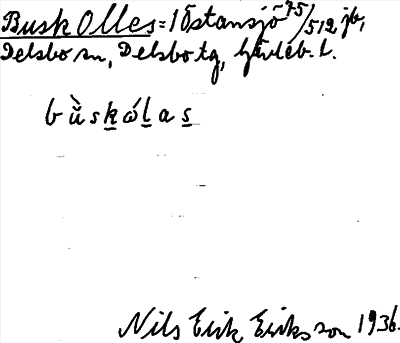 Busk Olles = 1 Östansjö 75/512 jb,
Delsbo sn, Delsbo tg, Gävleb. l.
bŭ̀skólas
Nils Erik Eriksson 1936.